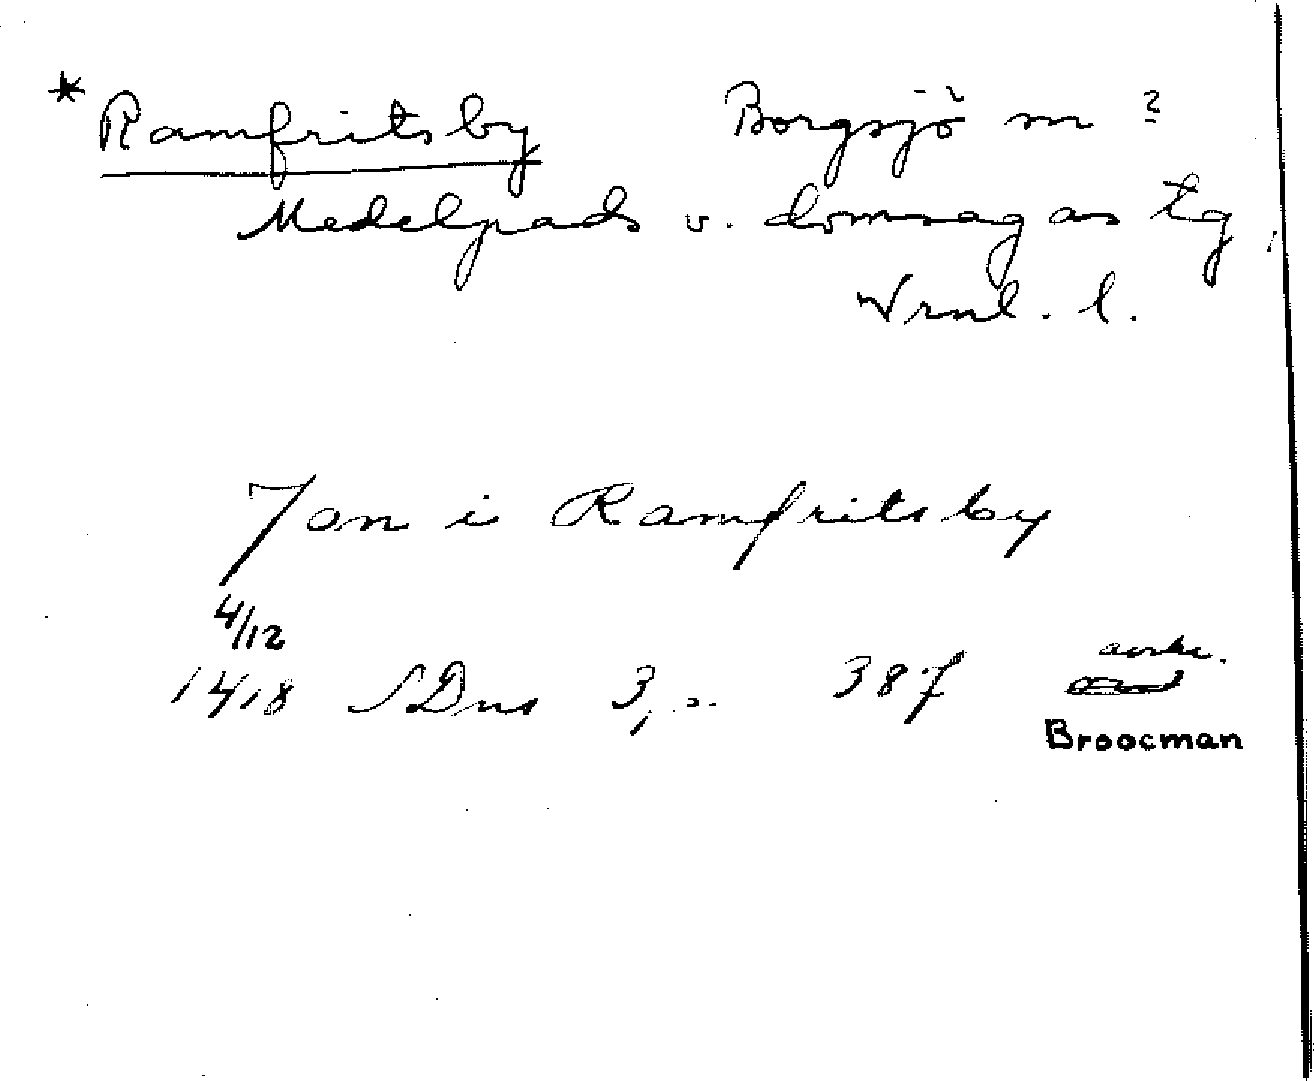 * Ramfritsby Borgsjö sn ?
Medelpads v. domsagas tg
Vrnl. l.
Jon i Ramfritsby
4/12
1418 SDns 3, s. 387 avskr.
Broocman